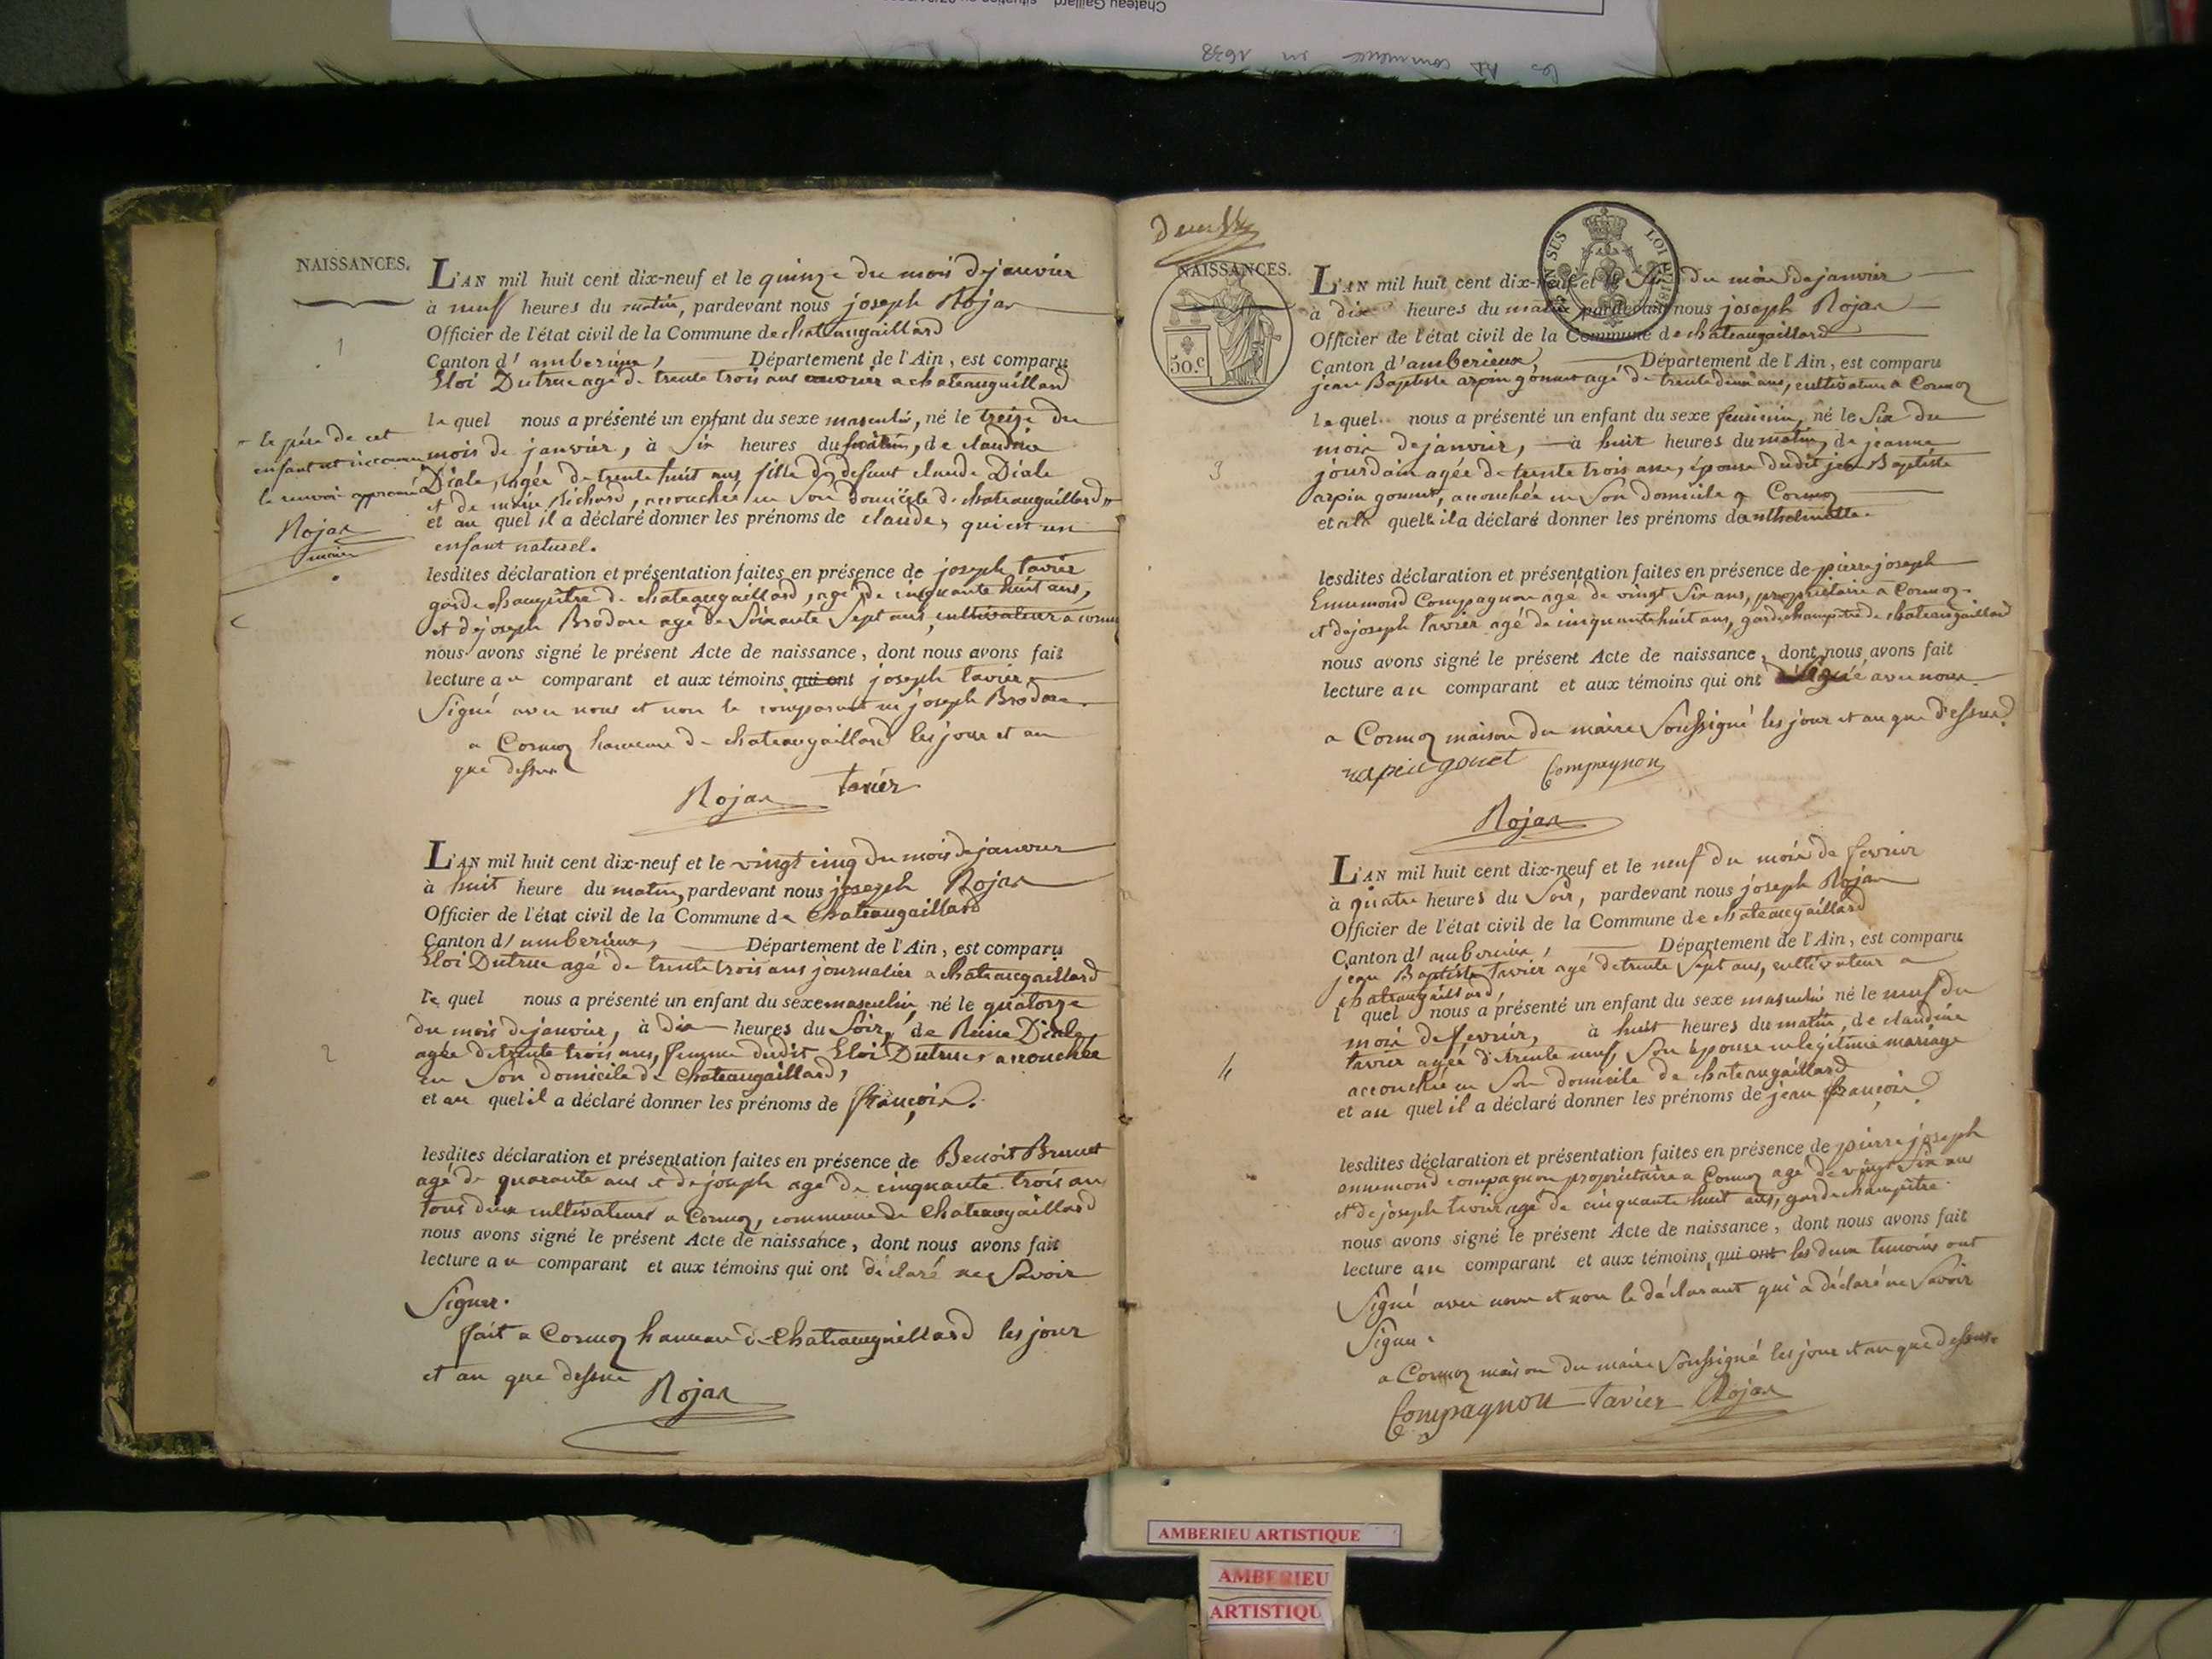 Chateau Gaillard
les commence en 1638
NAISSANCES.
1
L'AN mil huit cent dix-neuf et le quinze du mois de janvier
à neuf heures du matin, pardevant nous joseph Rojar
Officier de l'état civil de la Commune de chateaugaillard
Canton d'amberieux, Département de l'Ain, est comparu
Eloi Dutruc agé de trente trois ans ouvrier a chateaugaillard
le quel nous a présenté un enfant du sexe masculin, né le treize du
mois de janvier, à Six heures du matin, de claudine
Diale, agée de trente huit ans fille de defunt claude Diale
et de marie Richard, accouchée en Son domicile de chateaugaillard
et au quel il a déclaré donner les prénoms de claude, qui est un
enfant naturel.
le père de cet
enfant est inconnu
le renvoi approuvé
Rojar
maire
lesdites déclaration et présentation faites en présence de joseph tavier
garde champêtre de chateaugaillard, agé de cinquante huit ans,
et de joseph Brodare agé de Soixante Sept ans, cultivateur a cormoz
nous avons signé le présent Acte de naissance, dont nous avons fait
lecture au comparant et aux témoins qui ont joseph tavier
Signé avec nous et non le comparant ni joseph Brodare
a Cormoz hameau de chateaugaillard les jour et an
que dessus
Rojar tavier
2
L'AN mil huit cent dix-neuf et le vingt cinq du mois de janvier
à huit heure du matin, pardevant nous joseph Rojar
Officier de l'état civil de la Commune de Chateaugaillard
Canton d'amberieux, Département de l'Ain, est comparu
Eloi Dutruc agé de trente trois ans journalier a chateaugaillard
le quel nous a présenté un enfant du sexe masculin, né le quatorze
du mois de janvier, à dix heures du Soir, de Reine Diale
agée de trente trois ans, femme dudit Eloi Dutruc, accouchée
en Son domicile de chateaugaillard,
et au quel il a déclaré donner les prénoms de françois.
lesdites déclaration et présentation faites en présence de Benoit Brunet
agé de quarante ans et de joseph agé de cinquante trois ans
tous deux cultivateurs a Cormoz, commune de Chateaugaillard
nous avons signé le présent Acte de naissance, dont nous avons fait
lecture au comparant et aux témoins qui ont déclaré ne Savoir
Signer.
fait a Cormoz hameau de Chateaugaillard les jour
et an que dessus
Rojar
NAISSANCES.
50.c
3
L'AN mil huit cent dix-neuf et le Six du mois de janvier
à dix heures du matin pardevant nous joseph Rojar
Officier de l'état civil de la Commune de chateaugaillard
Canton d'amberieux, Département de l'Ain, est comparu
jean Baptiste arpin gonnet agé de trente deux ans, cultivateur a Cormoz
lequel nous a présenté un enfant du sexe feminin, né le Six du
mois de janvier, à huit heures du matin, de jeanne
jourdain agée de trente trois ans, épouse dudit jean Baptiste
arpin gonnet, accouchée en Son domicile a Cormoz
et a la quelle il a déclaré donner les prénoms d'anthelmette.
lesdites déclaration et présentation faites en présence de pierre joseph
Ennemond Compagnon agé de vingt Six ans, propriétaire a Cormoz
et de joseph tavier agé de cinquante huit ans, garde champêtre de chateaugaillard
nous avons signé le présent Acte de naissance, dont nous avons fait
lecture au comparant et aux témoins qui ont Signé avec nous.
a Cormoz maison du maire Soussigné les jour et an que dessus
arpin gonet Compagnon
Rojar
4
L'AN mil huit cent dix-neuf et le neuf du mois de fevrier
à quatre heures du Soir, pardevant nous joseph Rojar
Officier de l'état civil de la Commune de chateaugaillard
Canton d'amberieux, Département de l'Ain, est comparu
jean Baptiste tavier agé de trente Sept ans, cultivateur a
chateaugaillard,
l quel nous a présenté un enfant du sexe masculin né le neuf du
mois de fevrier, à huit heures du matin, de claudine
tavier agée de trente neuf, Son épouse en légitime mariage
accouchée en Son domicile de chateaugaillard
et au quel il a déclaré donner les prénoms de jean françois
lesdites déclaration et présentation faites en présence de pierre joseph
ennemond compagnon propriétaire a Cormoz agé de vingt Six ans
et de joseph tavier agé de cinquante huit ans, garde champêtre.
nous avons signé le présent Acte de naissance, dont nous avons fait
lecture au comparant et aux témoins, qui ont les deux temoins ont
Signé avec nous et non le déclarant qui a déclaré ne Savoir
Signer.
a Cormoz maison du maire Soussigné les jour et an que dessus.
Compagnon tavier Rojar
AMBERIEU ARTISTIQUE
AMBERIEU
ARTISTIQU